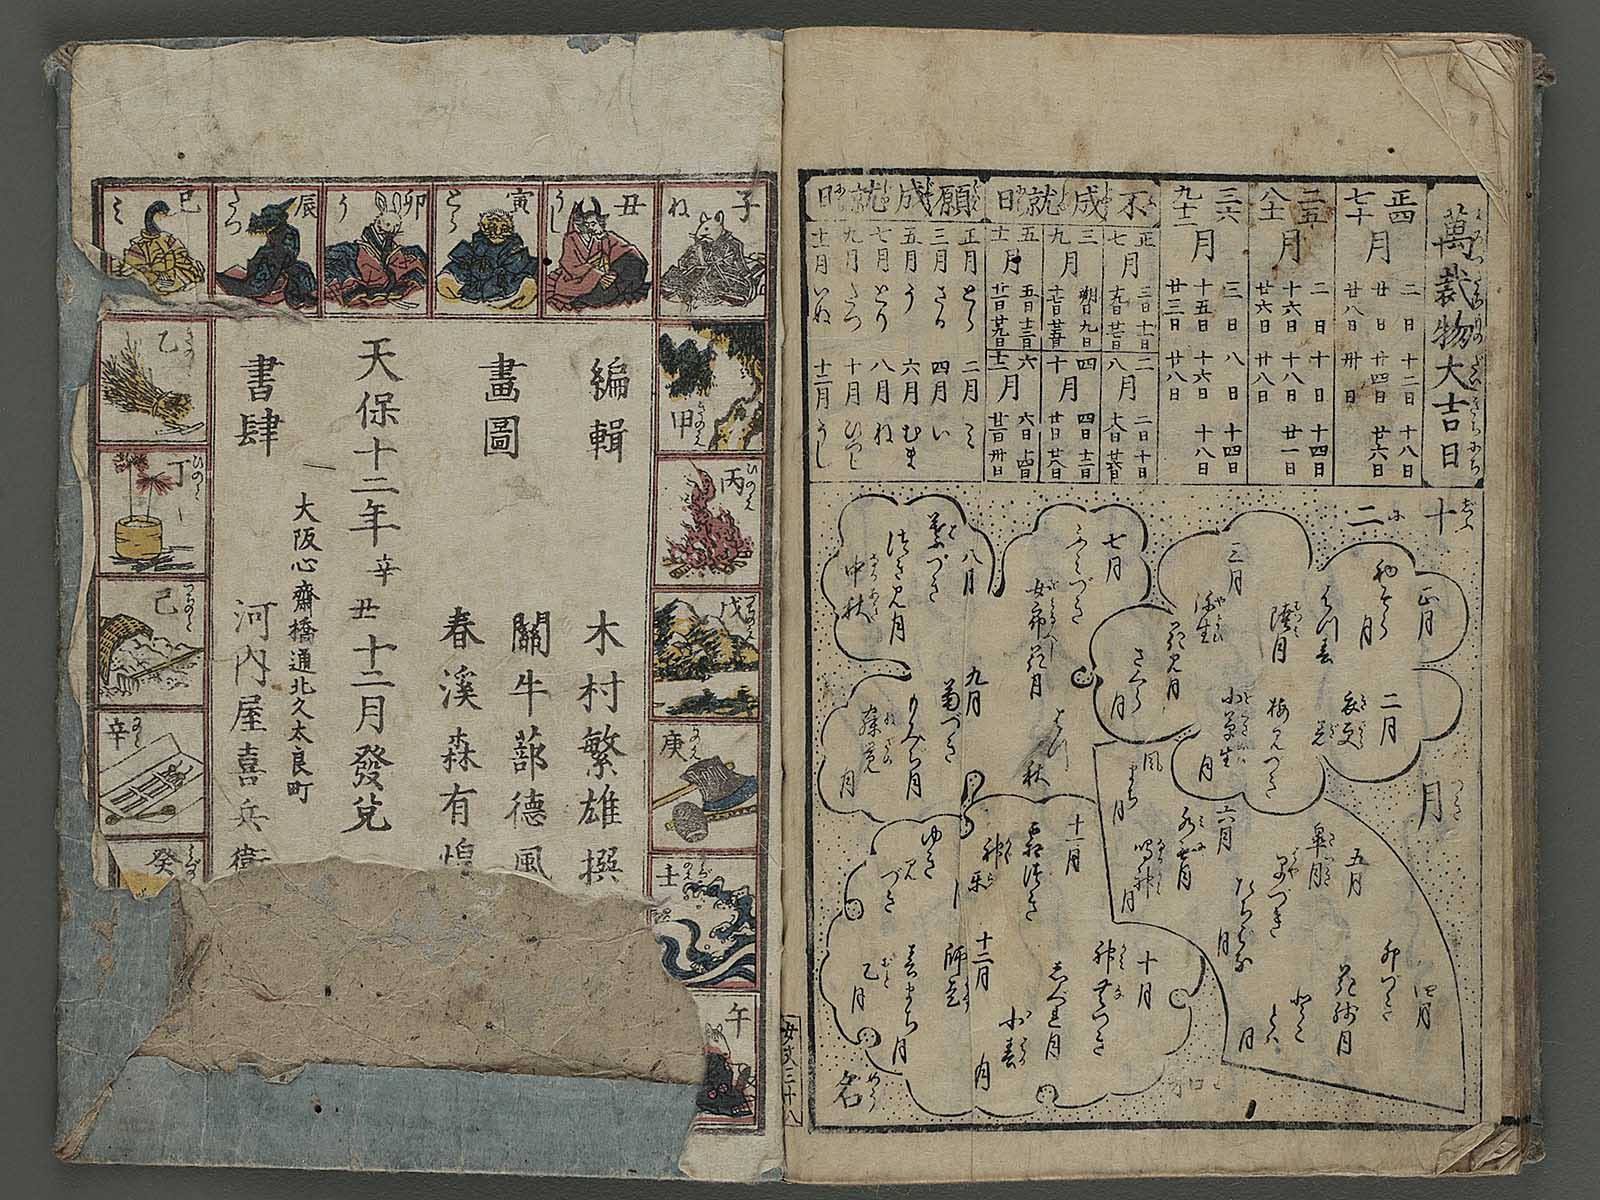 萬裁物大吉日
正四七十月
二日 十二日 十八日
廿日 廿四日 廿六日
廿八日 卅日
二五八十一月
二日 十日 十四日
十六日 十八日 廿一日
廿六日 廿八日
三六九十二月
三日 八日 十四日
十五日 十六日 十八日
廿三日 廿八日
不成就日
正七月
三日 十一日
十九日 廿七日
二八月
二日 十日
十八日 廿六日
三九月
朔日 九日
十七日 廿五日
四十月
四日 十二日
廿日 廿八日
五十一月
五日 十三日
廿一日 廿九日
六十二月
六日 十四日
廿二日 卅日
願成就日
正月 とら 二月 ミ
三月 さる 四月 い
五月 う 六月 むま
七月 とり 八月 ね
九月 たつ 十月 ひつじ
十一月 いぬ 十二月 うし
十二月
正月
初そら月
はつ春
睦月
二月
衣更着
梅見つき
小草生月
三月
弥生
花見月
さくら月
四月
卯づき
花残月
とりとく月
五月
皐月
早苗つき
たちばな月
六月
水無月
鳴神月
風まち月
七月
ふみづき
女郎花月
はつ秋
八月
葉づき
月見月
中秋
九月
菊づき
もみぢ月
寐覚月
十月
神無づき
小春
十一月
霜つき
神楽月
ゆき見づき
十二月
師走
春まち月
乙月
名
女文三十八
子 ね
丑 うし
寅 とら
卯 う
辰 たつ
巳 ミ
午
甲 きのえ
乙 きのと
丙 ひのえ
丁 ひのと
戊 つちのえ
己 つちのと
庚 かのえ
辛 かのと
壬
癸
編輯 木村繁雄撰
畫圖 關牛蔀德風
春溪森有煌
天保十二年辛丑十二月發兌
大阪心齋橋通北久太良町
書肆 河内屋喜兵衛